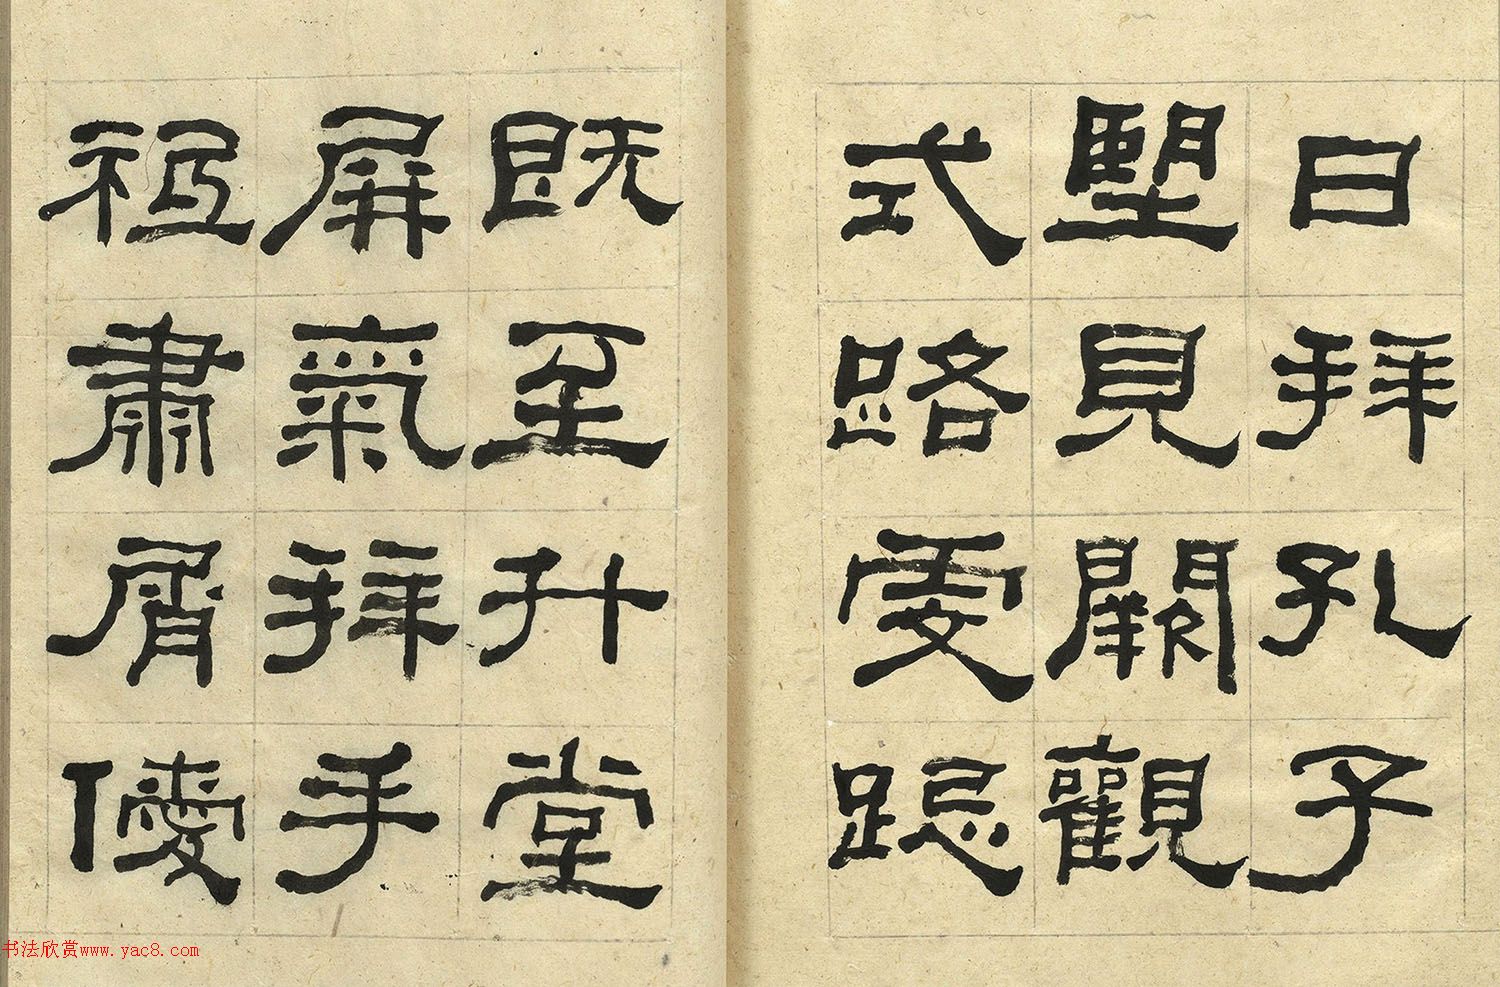 日拜孔子
朢見闕觀
式路虔跽
既至升堂
屏氣拜手
祗肅屑僾
书法欣赏www.yac8.com